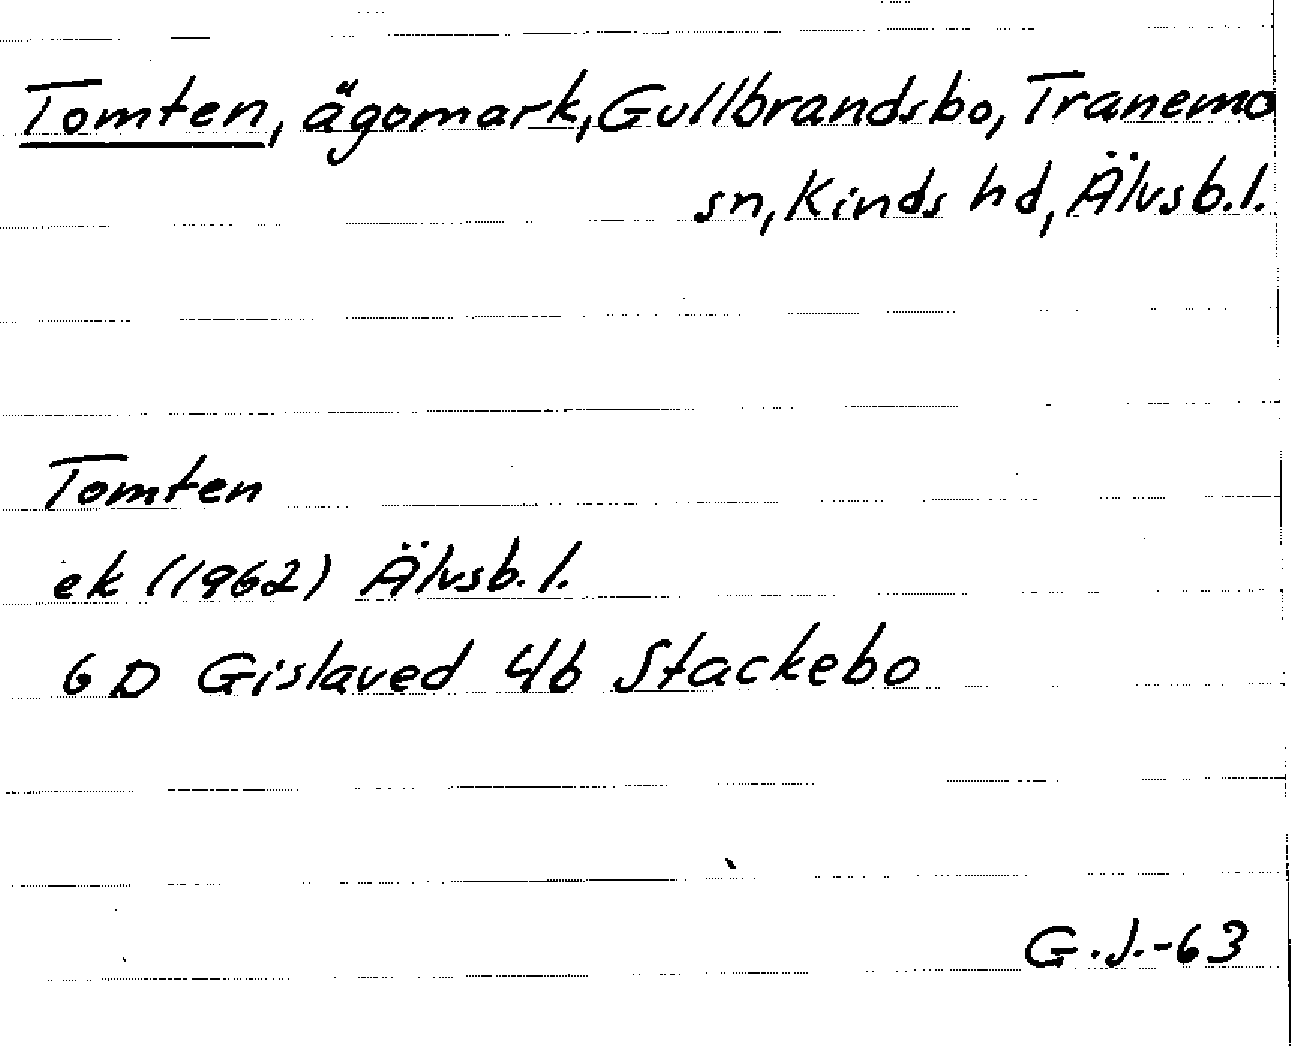 Tomten, ägomark, Gullbrandsbo, Tranemo
sn, Kinds hd, Älvsb. l.
Tomten
ek (1962) Älvsb. l.
6 D Gislaved 4b Stackebo
G.J.-63